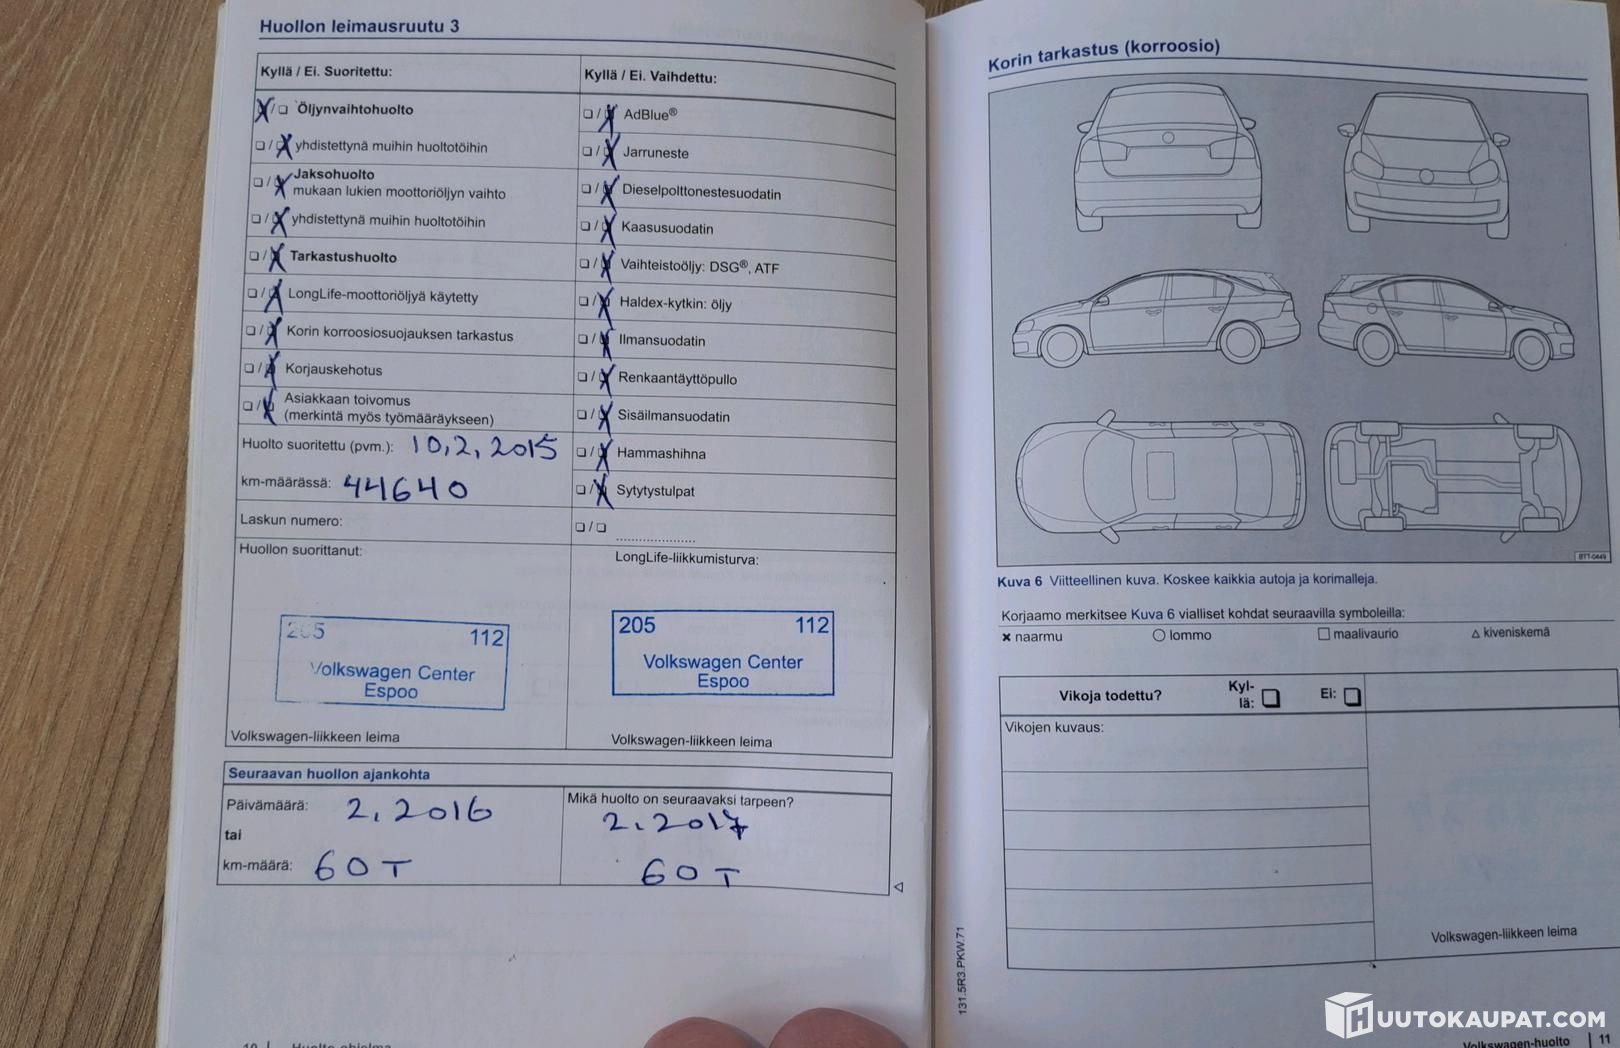 Huollon leimausruutu 3
Kyllä / Ei. Suoritettu:
X/❏ Öljynvaihtohuolto
❏/X yhdistettynä muihin huoltotöihin
❏/X Jaksohuolto
mukaan lukien moottoriöljyn vaihto
❏/X yhdistettynä muihin huoltotöihin
❏/X Tarkastushuolto
❏/X LongLife-moottoriöljyä käytetty
❏/X Korin korroosiosuojauksen tarkastus
❏/X Korjauskehotus
❏/X Asiakkaan toivomus
(merkintä myös työmääräykseen)
Huolto suoritettu (pvm.): 10,2,2015
km-määrässä: 44640
Laskun numero:
Huollon suorittanut:
205 112
Volkswagen Center
Espoo
Volkswagen-liikkeen leima
Kyllä / Ei. Vaihdettu:
❏/X AdBlue®
❏/X Jarruneste
❏/X Dieselpolttonestesuodatin
❏/X Kaasusuodatin
❏/X Vaihteistoöljy: DSG®, ATF
❏/X Haldex-kytkin: öljy
❏/X Ilmansuodatin
❏/X Renkaantäyttöpullo
❏/X Sisäilmansuodatin
❏/X Hammashihna
❏/X Sytytystulpat
❏/❏ ....................
LongLife-liikkumisturva:
205 112
Volkswagen Center
Espoo
Volkswagen-liikkeen leima
Seuraavan huollon ajankohta
Päivämäärä: 2.2016
tai
km-määrä: 60 T
Mikä huolto on seuraavaksi tarpeen?
2.2017
60 T
Korin tarkastus (korroosio)
BTT-0449
Kuva 6 Viitteellinen kuva. Koskee kaikkia autoja ja korimalleja.
Korjaamo merkitsee Kuva 6 vialliset kohdat seuraavilla symboleilla:
× naarmu ○ lommo □ maalivaurio △ kiveniskemä
Vikoja todettu? Kyl-
lä: ❏ Ei: ❏
Vikojen kuvaus:
Volkswagen-liikkeen leima
131.5R3.PKW.71
HUUTOKAUPAT.COM
Volkswagen-huolto | 11